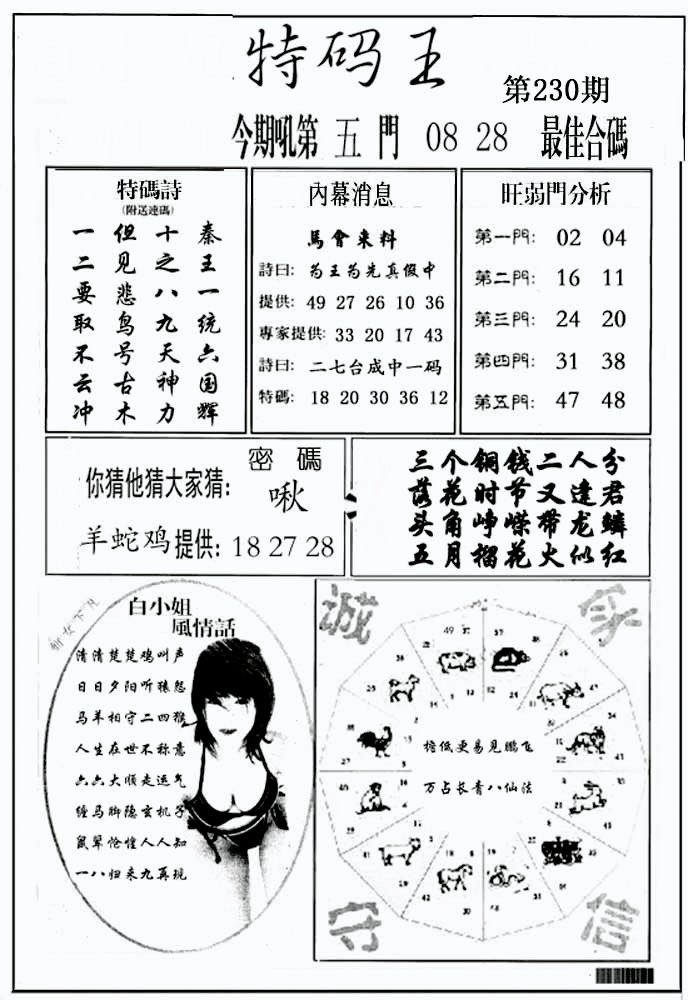 特码王
第230期
今期吼第 五 門 08 28 最佳合碼
特碼詩
(附送連碼)
秦王一统六国辉
十之八九天神力
但见悲鸟号古木
一二要取不云冲
內幕消息
馬會来料
詩曰: 为王为先真假中
提供: 49 27 26 10 36
專家提供: 33 20 17 43
詩曰: 二七台成中一码
特碼: 18 20 30 36 12
旺弱門分析
第一門: 02 04
第二門: 16 11
第三門: 24 20
第四門: 31 38
第五門: 47 48
密碼
你猜他猜大家猜: 啾
羊蛇鸡 提供: 18 27 28
三个铜钱二人分
落花时节又逢君
头角峥嵘带龙鳞
五月榴花火似红
白小姐
風情話
清清楚楚鸡叫声
日日夕阳听猿怨
马羊相守二四猴
人生在世不称意
六六大顺走运气
缠马脚隐玄机子
鼠翠怆惶人人知
一八归来九再现
诚
家
檐低更易见鹏飞
万占长青八仙法
守
信